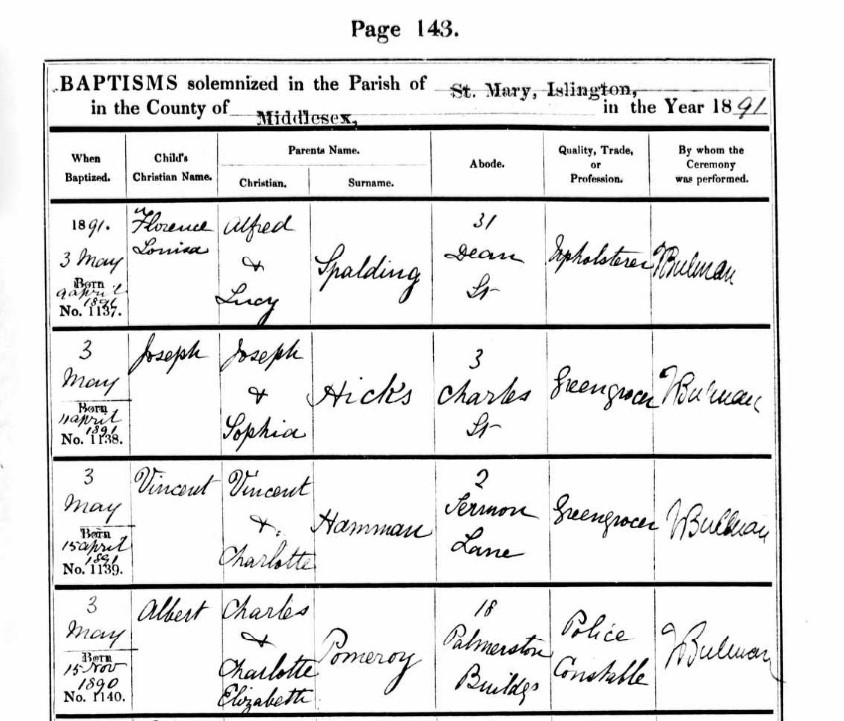 Page 143.
BAPTISMS solemnized in the Parish of St. Mary, Islington,
in the County of Middlesex, in the Year 1891
When Baptized.
Child's Christian Name.
Parents Name.
Christian.
Surname.
Abode.
Quality, Trade, or Profession.
By whom the Ceremony was performed.
1891.
3 May
Born
9 April
1891
No. 1137.
Florence
Louisa
Alfred
&
Lucy
Spalding
31
Dean
St
Upholsterer
Bulman
3
May
Born
11 April
1891
No. 1138.
Joseph
Joseph
&
Sophia
Hicks
3
Charles
St
Greengrocer
Bulman
3
May
Born
15 April
1891
No. 1139.
Vincent
Vincent
&
Charlotte
Hamman
2
Sermon
Lane
Greengrocer
Bulman
3
May
Born
15 Nov
1890
No. 1140.
Albert
Charles
&
Charlotte
Elizabeth
Pomeroy
18
Palmerston
Buildgs
Police
Constable
Bulman